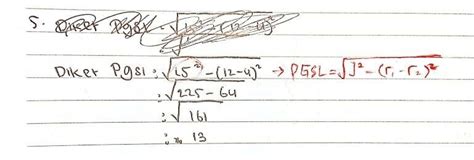 5.
Diker Pgsl : √15² - (12-4)² → PGSL = √J² - (r₁ - r₂)²
: √225 - 64
: √161
: 13